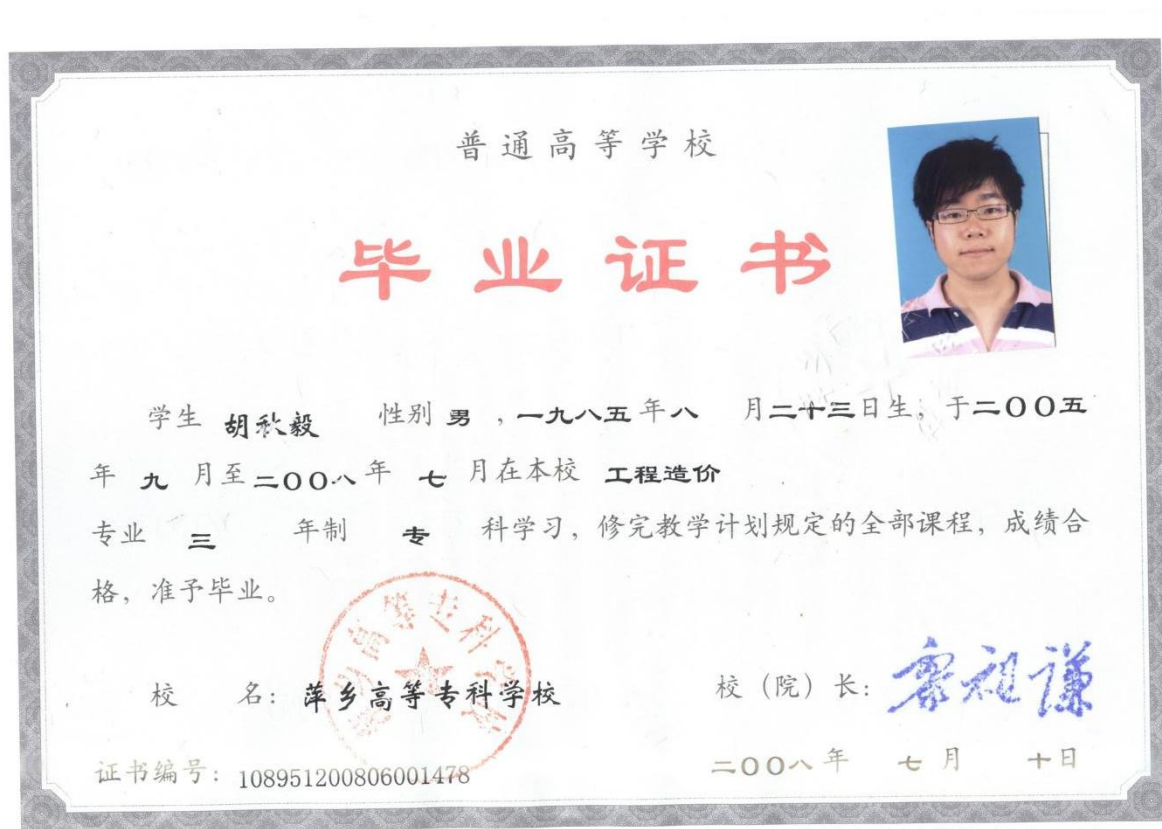 普通高等学校
毕业证书
学生 胡秋毅 性别 男 ，一九八五年八 月二十三日生，于二00五
年 九 月至二00八年 七 月在本校 工程造价
专业 三 年制 专 科学习，修完教学计划规定的全部课程，成绩合
格，准予毕业。
校 名：萍乡高等专科学校
校（院）长：
证书编号：108951200806001478
二00八年 七月 十日